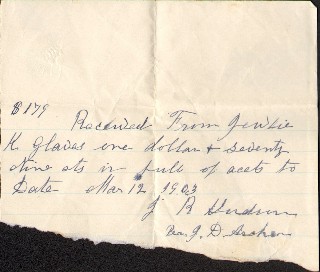 $1 79
Received From Jewsie
K Glaves one dollar & seventy
Nine cts in full of accts to
Date Mar 12 1903
J R Hudson
Per J. D.